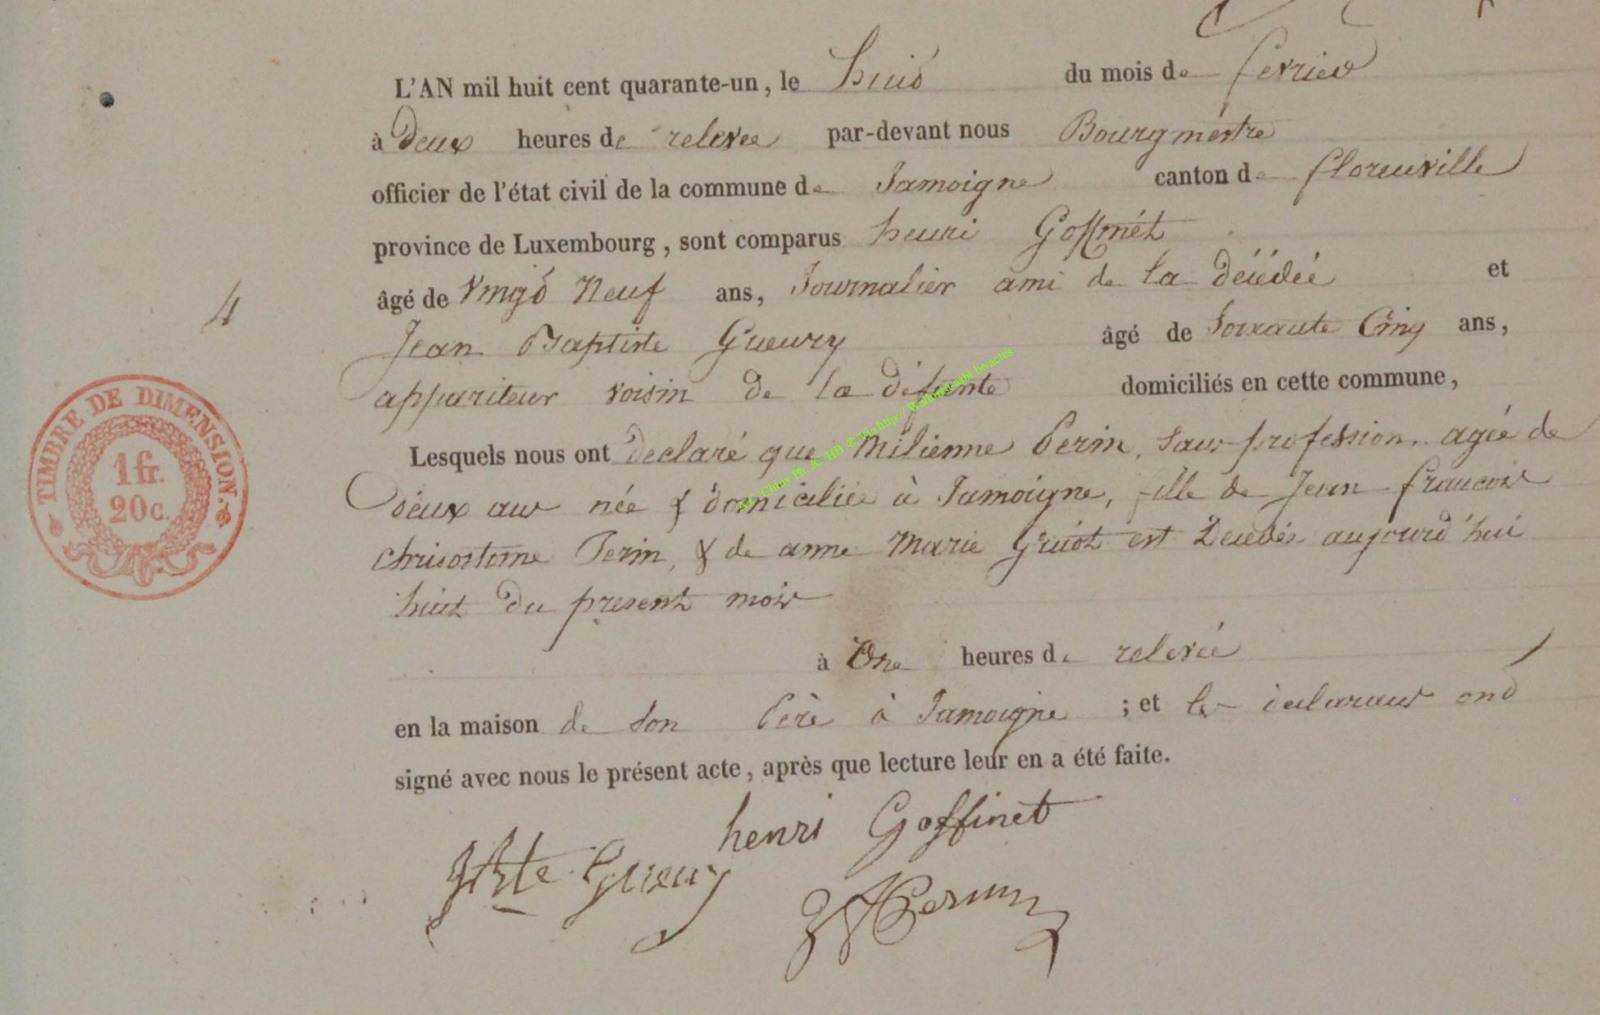 L'AN mil huit cent quarante-un, le huit du mois de fevrier
à Deux heures de relevée par-devant nous Bourgmestre
officier de l'état civil de la commune de Jamoigne canton de florenville
province de Luxembourg, sont comparus henri Goffinét
âgé de Vingt Neuf ans, Journalier ami de la décédée et
Jean Baptiste Gueury âgé de Soixante Cinq ans,
appariteur voisin de la défunte domiciliés en cette commune,
4
Lesquels nous ont declaré que Milienne Perin, Sans profession, agée de
deux ans née & domiciliée à Jamoigne, fille de Jean francois
chrisostome Perin, & de anne Marie Guiot est Decedée aujourd'hui
huit du present mois
à One heures de relevée
en la maison de Son Père à Jamoigne ; et les declarans ont
signé avec nous le présent acte, après que lecture leur en a été faite.
henri Goffinet
JBte Gueury
TIMBRE DE DIMENSION.
1 fr.
20 c.